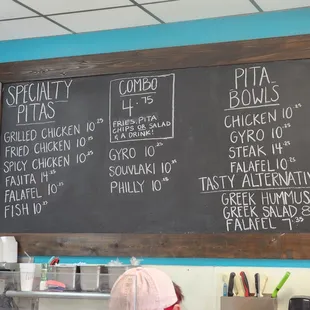 SPECIALTY
PITAS
GRILLED CHICKEN 10.25
FRIED CHICKEN 10.25
SPICY CHICKEN 10.25
FAJITA 14.25
FALAFEL 10.25
FISH 10.25
COMBO
4.75
FRIES, PITA
CHIPS OR SALAD
& A DRINK!
GYRO 10.25
SOUVLAKI 10.25
PHILLY 10.25
PITA
BOWLS
CHICKEN 10
GYRO 10
STEAK 14
FALAFEL 10
TASTY
GREEK HUMMUS
GREEK SALAD 8
FALAFEL 7